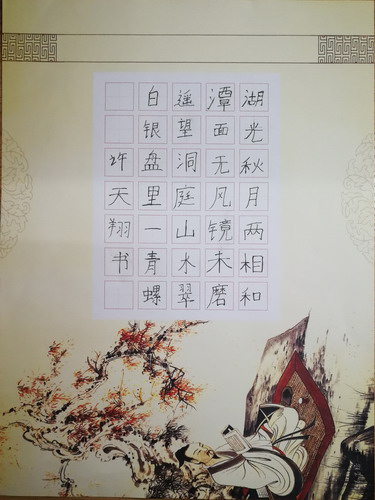 湖光秋月两相和
潭面无风镜未磨
遥望洞庭山水翠
白银盘里一青螺
许天翔书